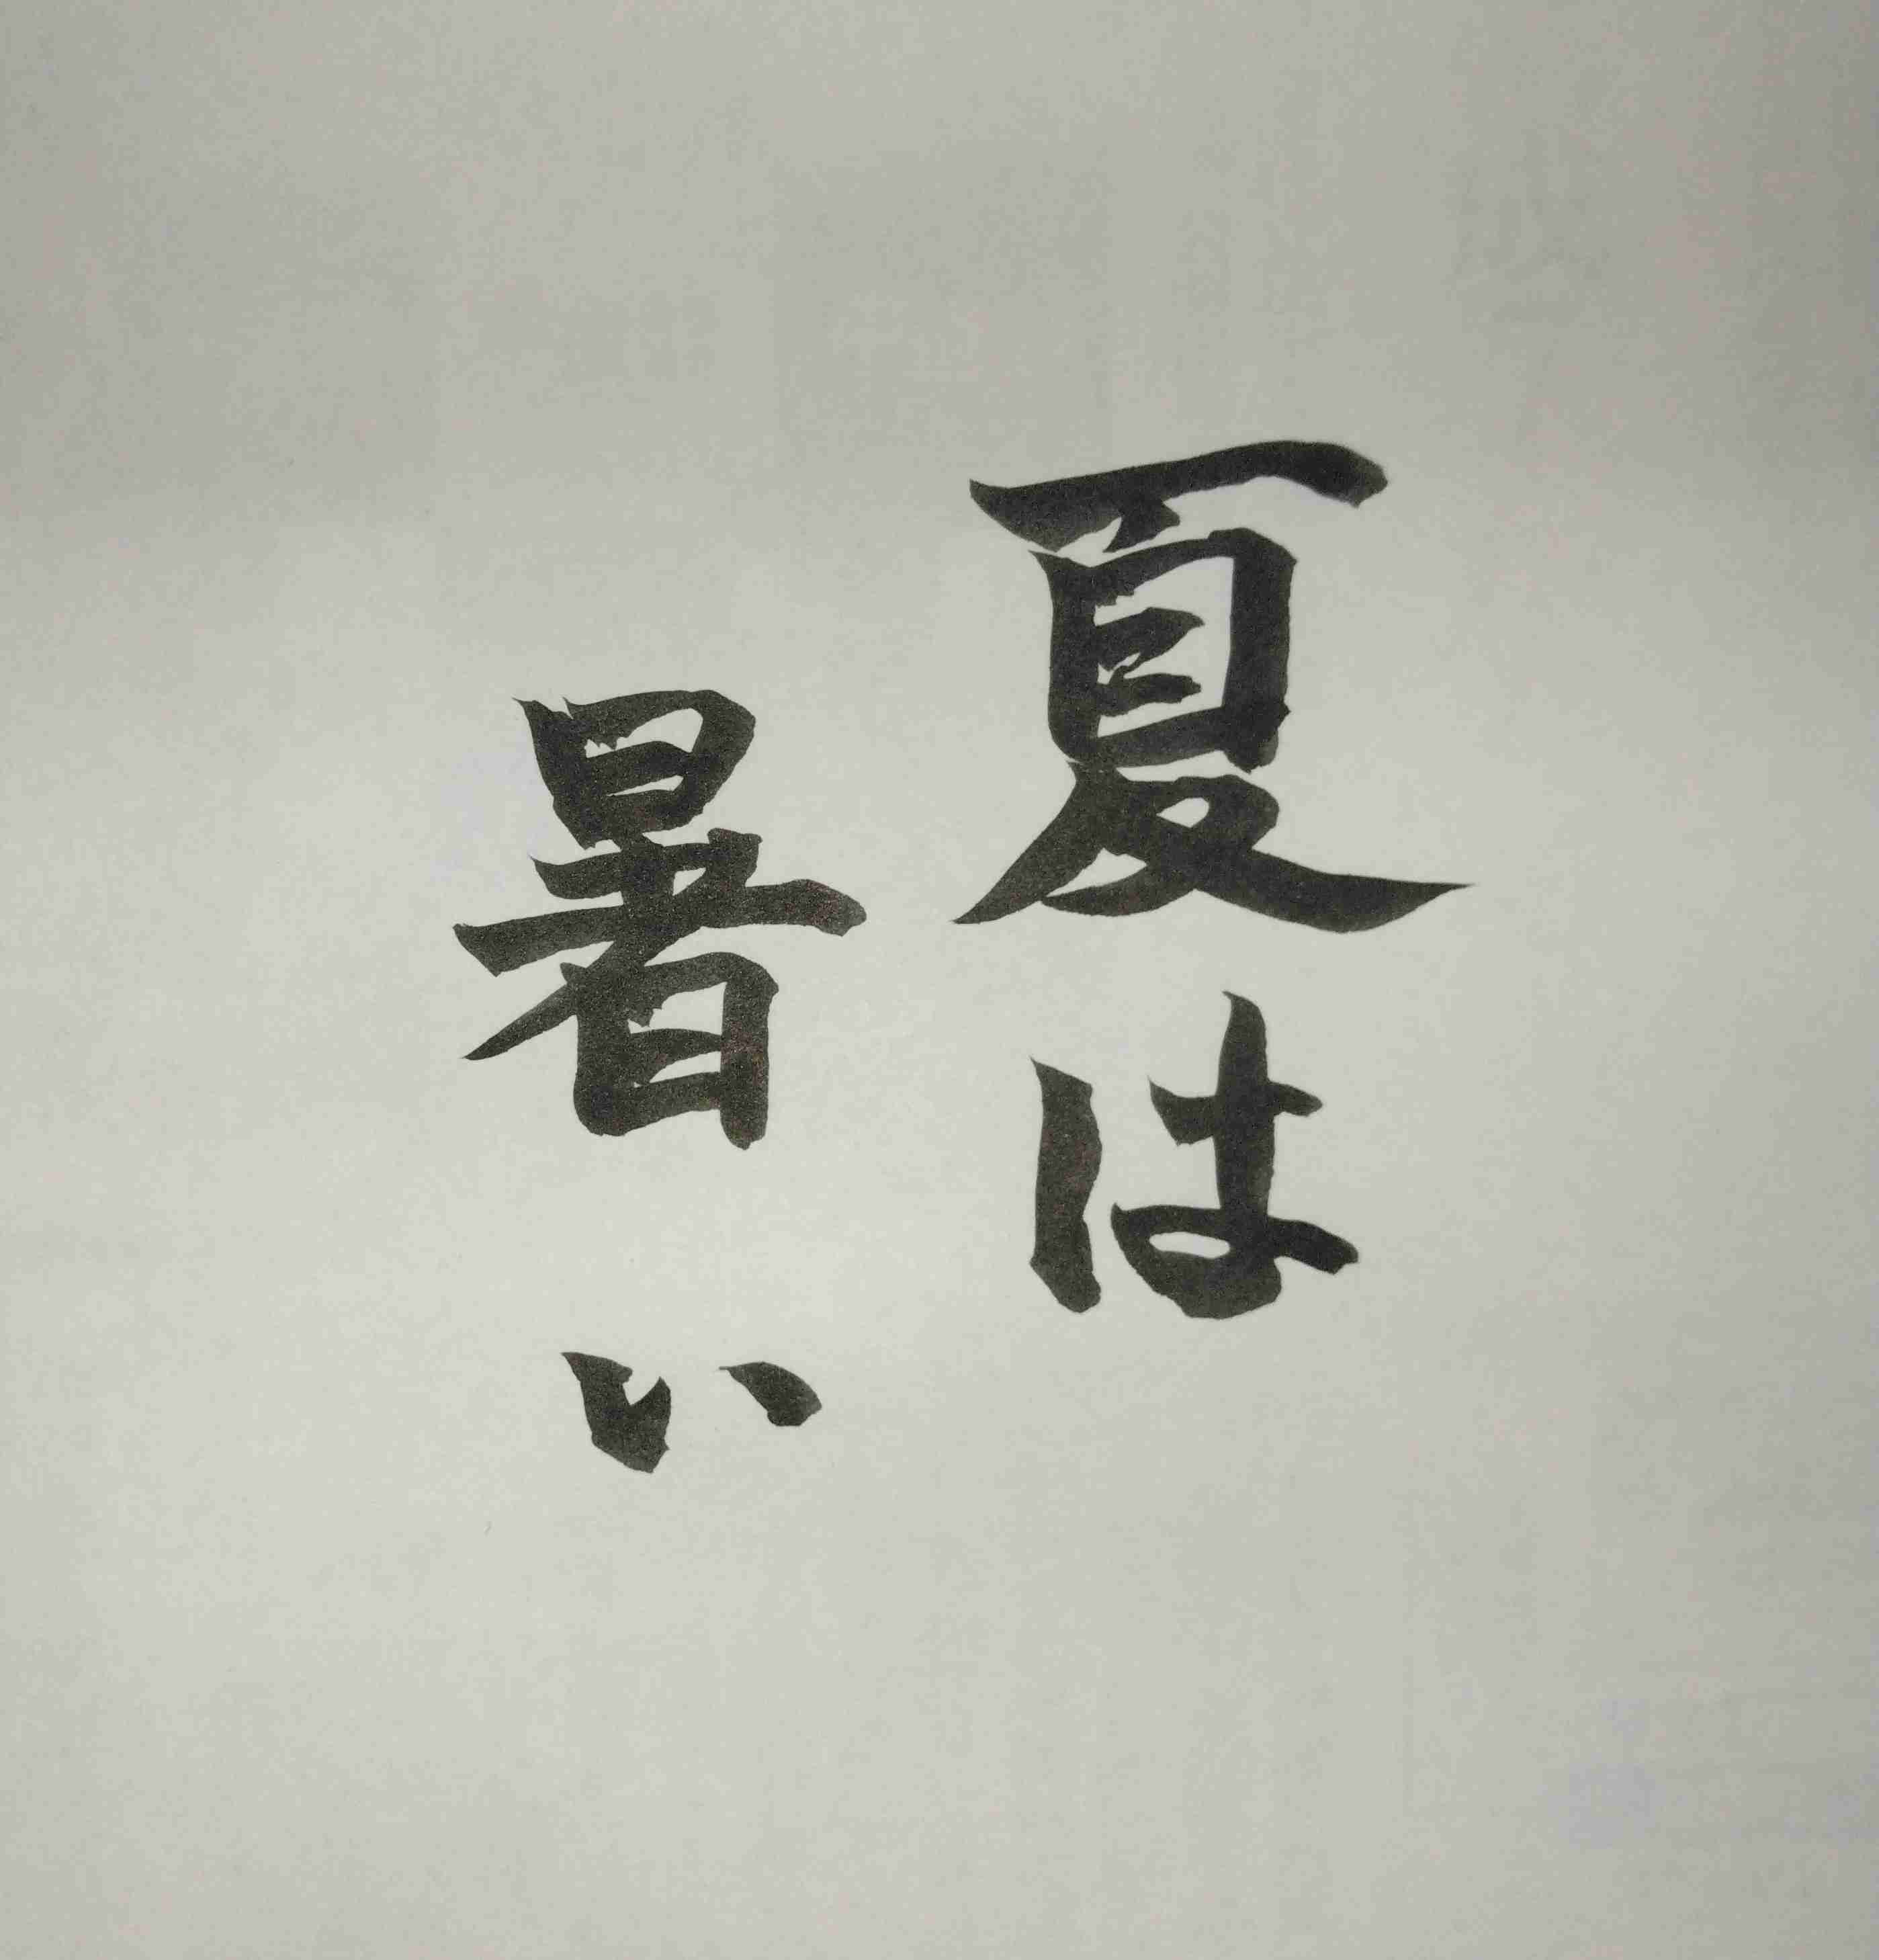 夏は
暑い